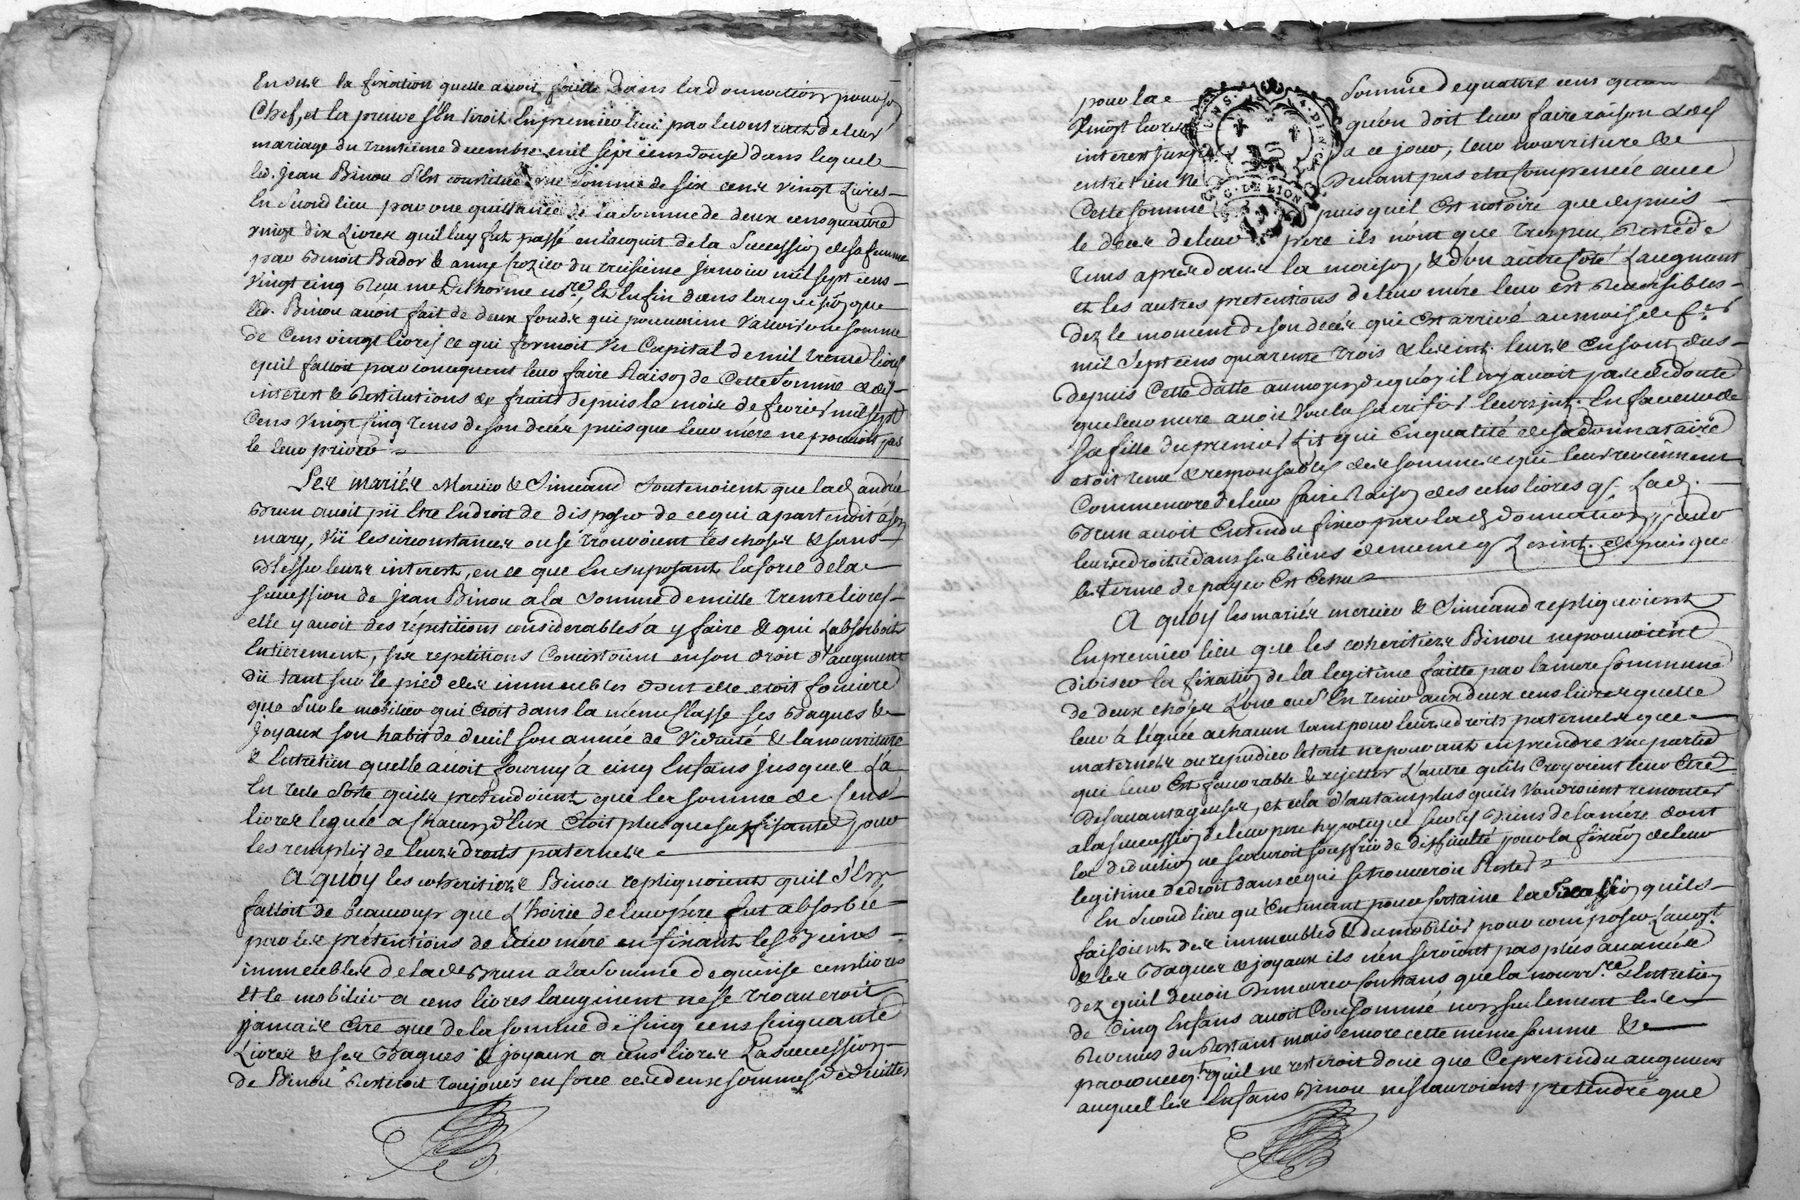 En sus la fixation quelle avoit faitte dans la donnation pour son
Chef, et la preuve s'en tiroit En premier lieu par le contract de leur
mariage du trentième decembre mil sept cens douse dans lequel
led. Jean Binou s'Est constitué une somme de six cens vingt Livres
En second lieu par une quittance de la somme de deux cens quattre
vingt dix Livres quil luy fut passé en lacquit de la succession de sa femme
par Benoit Bador & anne Crozier du troisieme Janvier mil sept cens
vingt cinq Reçu me Delhorme nore, & Enfin dans lacquisition que
led. Binou avoit fait de deux fonds qui pouvoient valloir une somme
de Cens vingt livres ce qui formoit un Capital de mil trente livres
quil falloit par consequent leur faire Raison de Cette somme & des
interest & Restitutions de fruits depuis le mois de fevrier mil sept
Cens vingt cinq tems de son decés puisque leur mére ne pouvoit pas
le leur priver
Les mariés Mercier & Siméand soutenoient que lad. andrée
Brun avoit pû Etre Endroit de disposer de ce qui apartenoit a son
mary, vû les circonstances ou se trouvoient les choses & sans
blesser leurs interest, en ce que En suposant la force de la
succession de Jean Binou a la somme de mille trente livres
elle y avoit des repetitions considerables a y faire & qui l'absorboit
Entierement, ses repetitions Consistoient en son droit d'augment
dû tant sur le pied des immeubles dont elle etoit fonciere
que sur le mobilier qui Etoit dans la même Classe ses Bagues &
Joyaux son habit de deuil son année de viduité & la nourriture
& Entretien quelle avoit fourny à cinq Enfans Jusques La
En telle sorte quils pretendoient que la somme de Cens
livres leguée a chacun d'Eux Etoit plus que suffisante pour
les remplir de leurs droits paternels
A quoy les coheritiers Binou repliquoient quil s'En
falloit de beaucoup que L'hoirie de leur pére fut absorbée
par les prétentions de leur mére en fixant les Biens
immeubles de lad. Brun a la somme de quinse cens livres
et le mobilier a cens livres laugment ne se trouveroit
jamais Etre que de la somme de Cinq cens Cinquante
Livres & ses Bagues & joyaux a cens livres La succession
de Binou Resteroit toujours en force ces deux sommes deduittes
pour la somme de quattre cens quatre
vingt livres qu'on doit leur faire raison & des
interest jusqu'a ce jour, leur nourriture &
entretien ne devant pas etre Comprenée avec
Cette somme puisquil Est notoire que depuis
le decés de leur pere ils nont que tres peu Resté de
tems aprés dans la maison, & d'un autre Coté Laugment
et les autres pretentions de leur mére leur est reversibles
dez le moment de son decés qui Est arrivé au mois de f
mil sept cens quarente trois & les int. leurs en sont dus
depuis Cette datte au moyen de quoy il ny avoit pas de doute
que leur mere avoit voulu sacrifier leurs int. En faveur de
sa fille du premier Lit qui En qualité de sa donnataire
etoit tenue & responsable des sommes qui leur reviennent
Comme encore de leur faire Raison des cens livres q. Lad.
Brun avoit Entendu fixer par lad. donnation pour
leurs droits dans ses biens de meme q. Les int. depuis que
le terme de payer Est Echu
A quoy les mariés mercier & Siméand repliquoient
En premier lieu que les coheritiers Binou ne pouvoient
diviser la fixation de la legitime faitte par la mere Commune
de deux choses L'une ou S'En tenir aux deux cens livres quelle
leur à léguée a chacun tant pour leurs droits paternels que
maternels ou repudier le tout ne pouvant en prendre une partie
qui leur Est favorable & rejetter L'autre quils Croyoient leur Etre
Desavantageuse, et cela d'autant plus quils voudroient remonter
a la succession de leur pere hypotequée sur les Biens de la mére dont
la deduction ne scauroit souffrir de difficulté pour la fixaon de leur
legitime de droit dans ce qui se trouveroit Rester
En second lieu qu'En tenant pour certaine la Fixation quils
faisoient des immeubles & du mobilier pour composer Laugt
& les Bagues & joyaux ils n'en seroient pas plus avancés
dez quil devoit demeurer Constans que la nourre. & Entretien
de Cinq Enfans avoit Consommé non seulement les
Revenus du Restant mais encore cette même somme &
par conseqt quil ne resteroit donc que Ce pretendu augment
auquel les Enfans Binou ne scauroient pretendre que